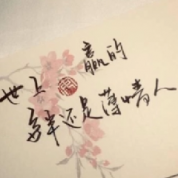 世上赢的
多半还是薄情人